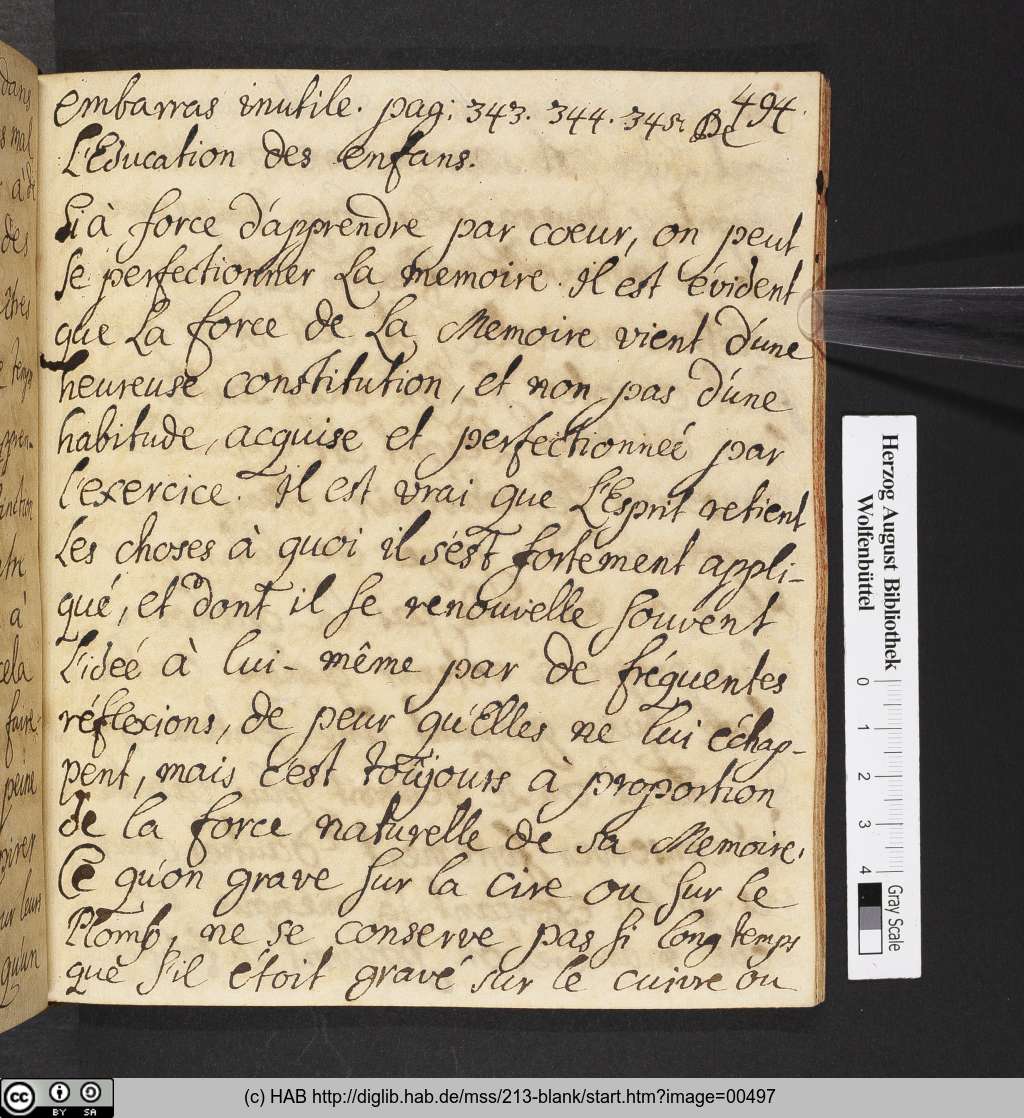 494.
embarras inutile. pag: 343. 344. 345. De
L'Education des enfans.
Si à force d'apprendre par cœur, on peut
se perfectionner La memoire. Il est évident
que La force de La Memoire vient d'une
heureuse constitution, et non pas d'une
habitude, acquise et perfectionneé par
l'exercice. Il est vrai que L'Esprit retient
Les choses à quoi il s'est fortement appli-
qué, et dont il se renouvelle souvent
L'ideé à lui-même par de fréquentes
réflexions, de peur qu'Elles ne lui échap-
pent, mais c'est toûjours à proportion
de la force naturelle de sa Memoire.
Ce qu'on grave sur la cire ou sur le
Plomb, ne se conserve pas si long temps
que s'il étoit gravé sur le cuivre ou
dans
mal
des
cela
faire
peine
leurs
qu'un
Herzog August Bibliothek
Wolfenbüttel
0 1 2 3 4
Gray Scale
cc BY SA
(c) HAB http://diglib.hab.de/mss/213-blank/start.htm?image=00497